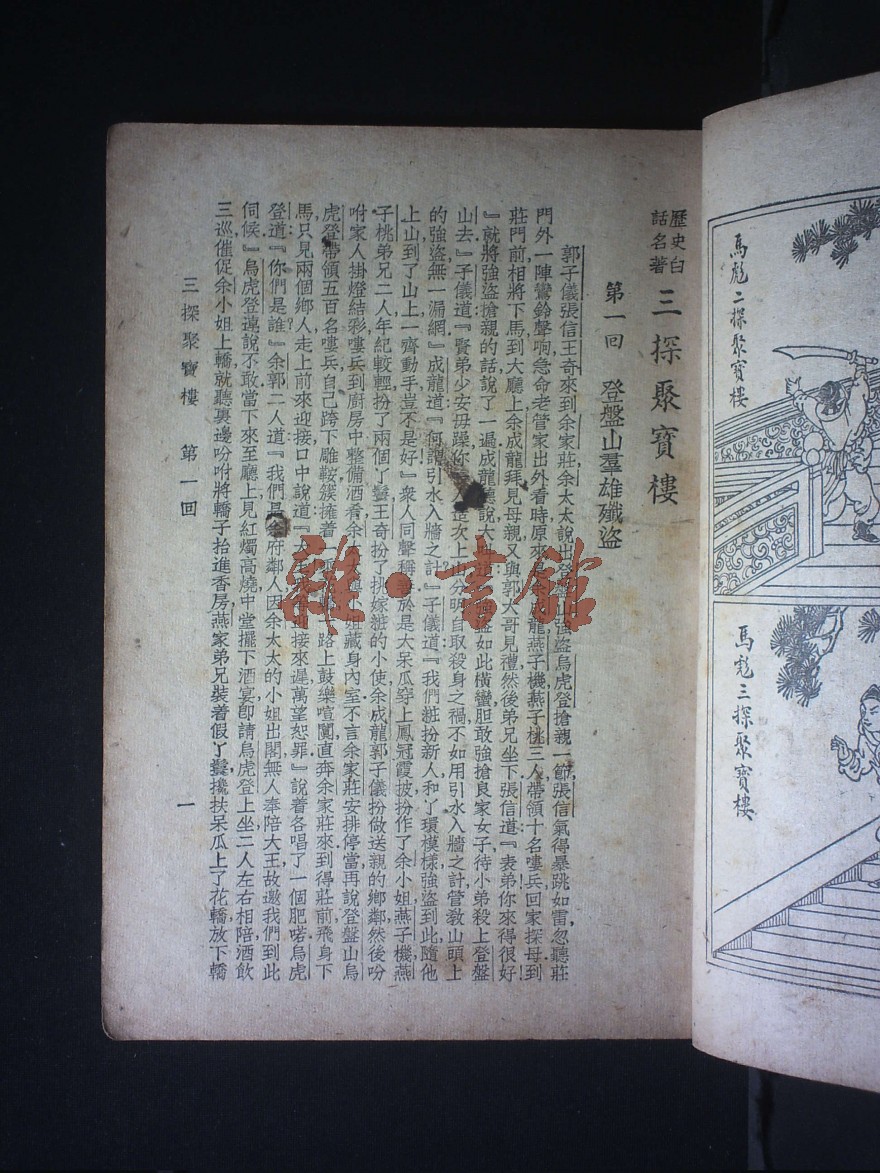 馬彪二探聚寶樓
馬彪三探聚寶樓
歷史白
話名著
三探聚寶樓
第一回 登盤山羣雄殲盜
郭子儀張信王奇來到余家莊余太太說出登盤山強盜烏虎登搶親一節,張信氣得暴跳如雷忽聽莊
門外一陣鸞鈴聲响急命老管家出外看時原來是余成龍燕子機燕子桃三人帶領十名嘍兵回家探母到
莊門前相將下馬到大廳上余成龍拜見母親又與郭大哥見禮然後弟兄坐下張信道『表弟你來得很好!
』就將強盜搶親的話說了一遍成龍聽說大叫道『強盜如此橫蠻胆敢強搶良家女子待小弟殺上登盤
山去』子儀道『賢弟少安毋躁你 次上山分明自取殺身之禍不如用引水入牆之計管教山頭上
的強盜無一漏網』成龍道『何謂引水入牆之計?』子儀道『我們粧扮新人和了環模樣強盜到此隨他
上山到了山上一齊動手豈不是好!』衆人同聲稱 於是大呆瓜穿上鳳冠霞披扮作了余小姐燕子機燕
子桃弟兄二人年紀較輕扮了兩個丫鬟王奇扮了執嫁粧的小使余成龍郭子儀扮做送親的鄉鄰然後吩
咐家人掛燈結彩嘍兵到廚房中整備酒肴余太太與小姐藏身內室不言余家莊安排停當再說登盤山烏
虎登帶領五百名嘍兵自己跨下雕鞍簇擁着一 路上鼓樂喧闐直奔余家莊來到得莊前飛身下
馬只見兩個鄉人走上前來迎接口中說道『大 接來遲萬望恕罪』說着各唱了一個肥喏烏虎
登道『你們是誰?』余郭二人道『我們是余府鄰人因余太太的小姐出閣無人奉陪大王故邀我們到此
伺候』烏虎登連說不敢當下來至廳上見紅燭高燒中堂擺下酒宴卽請烏虎登上坐二人左右相陪酒飲
三巡催促余小姐上轎就聽裏邊吩咐將轎子抬進香房燕家弟兄裝着假丫鬟攙扶呆瓜上了花轎放下轎
三探聚寶樓 第一回 一
雜·書館